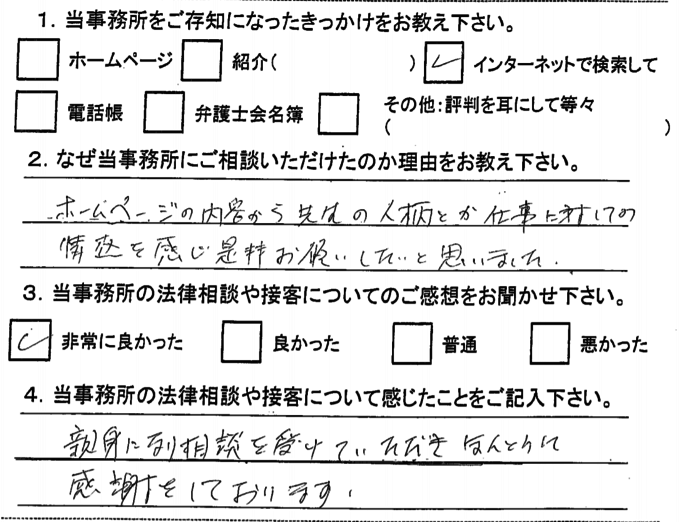 1. 当事務所をご存知になったきっかけをお教え下さい。
ホームページ 紹介( ) インターネットで検索して
電話帳 弁護士会名簿 その他:評判を耳にして等々
( )
2. なぜ当事務所にご相談いただけたのか理由をお教え下さい。
ホームページの内容から先生の人柄とか仕事に対しての
情熱を感じ是非お願いしたいと思いました.
3. 当事務所の法律相談や接客についてのご感想をお聞かせ下さい。
非常に良かった 良かった 普通 悪かった
4. 当事務所の法律相談や接客について感じたことをご記入下さい。
親身になり相談を受けていただき
感謝をしております.